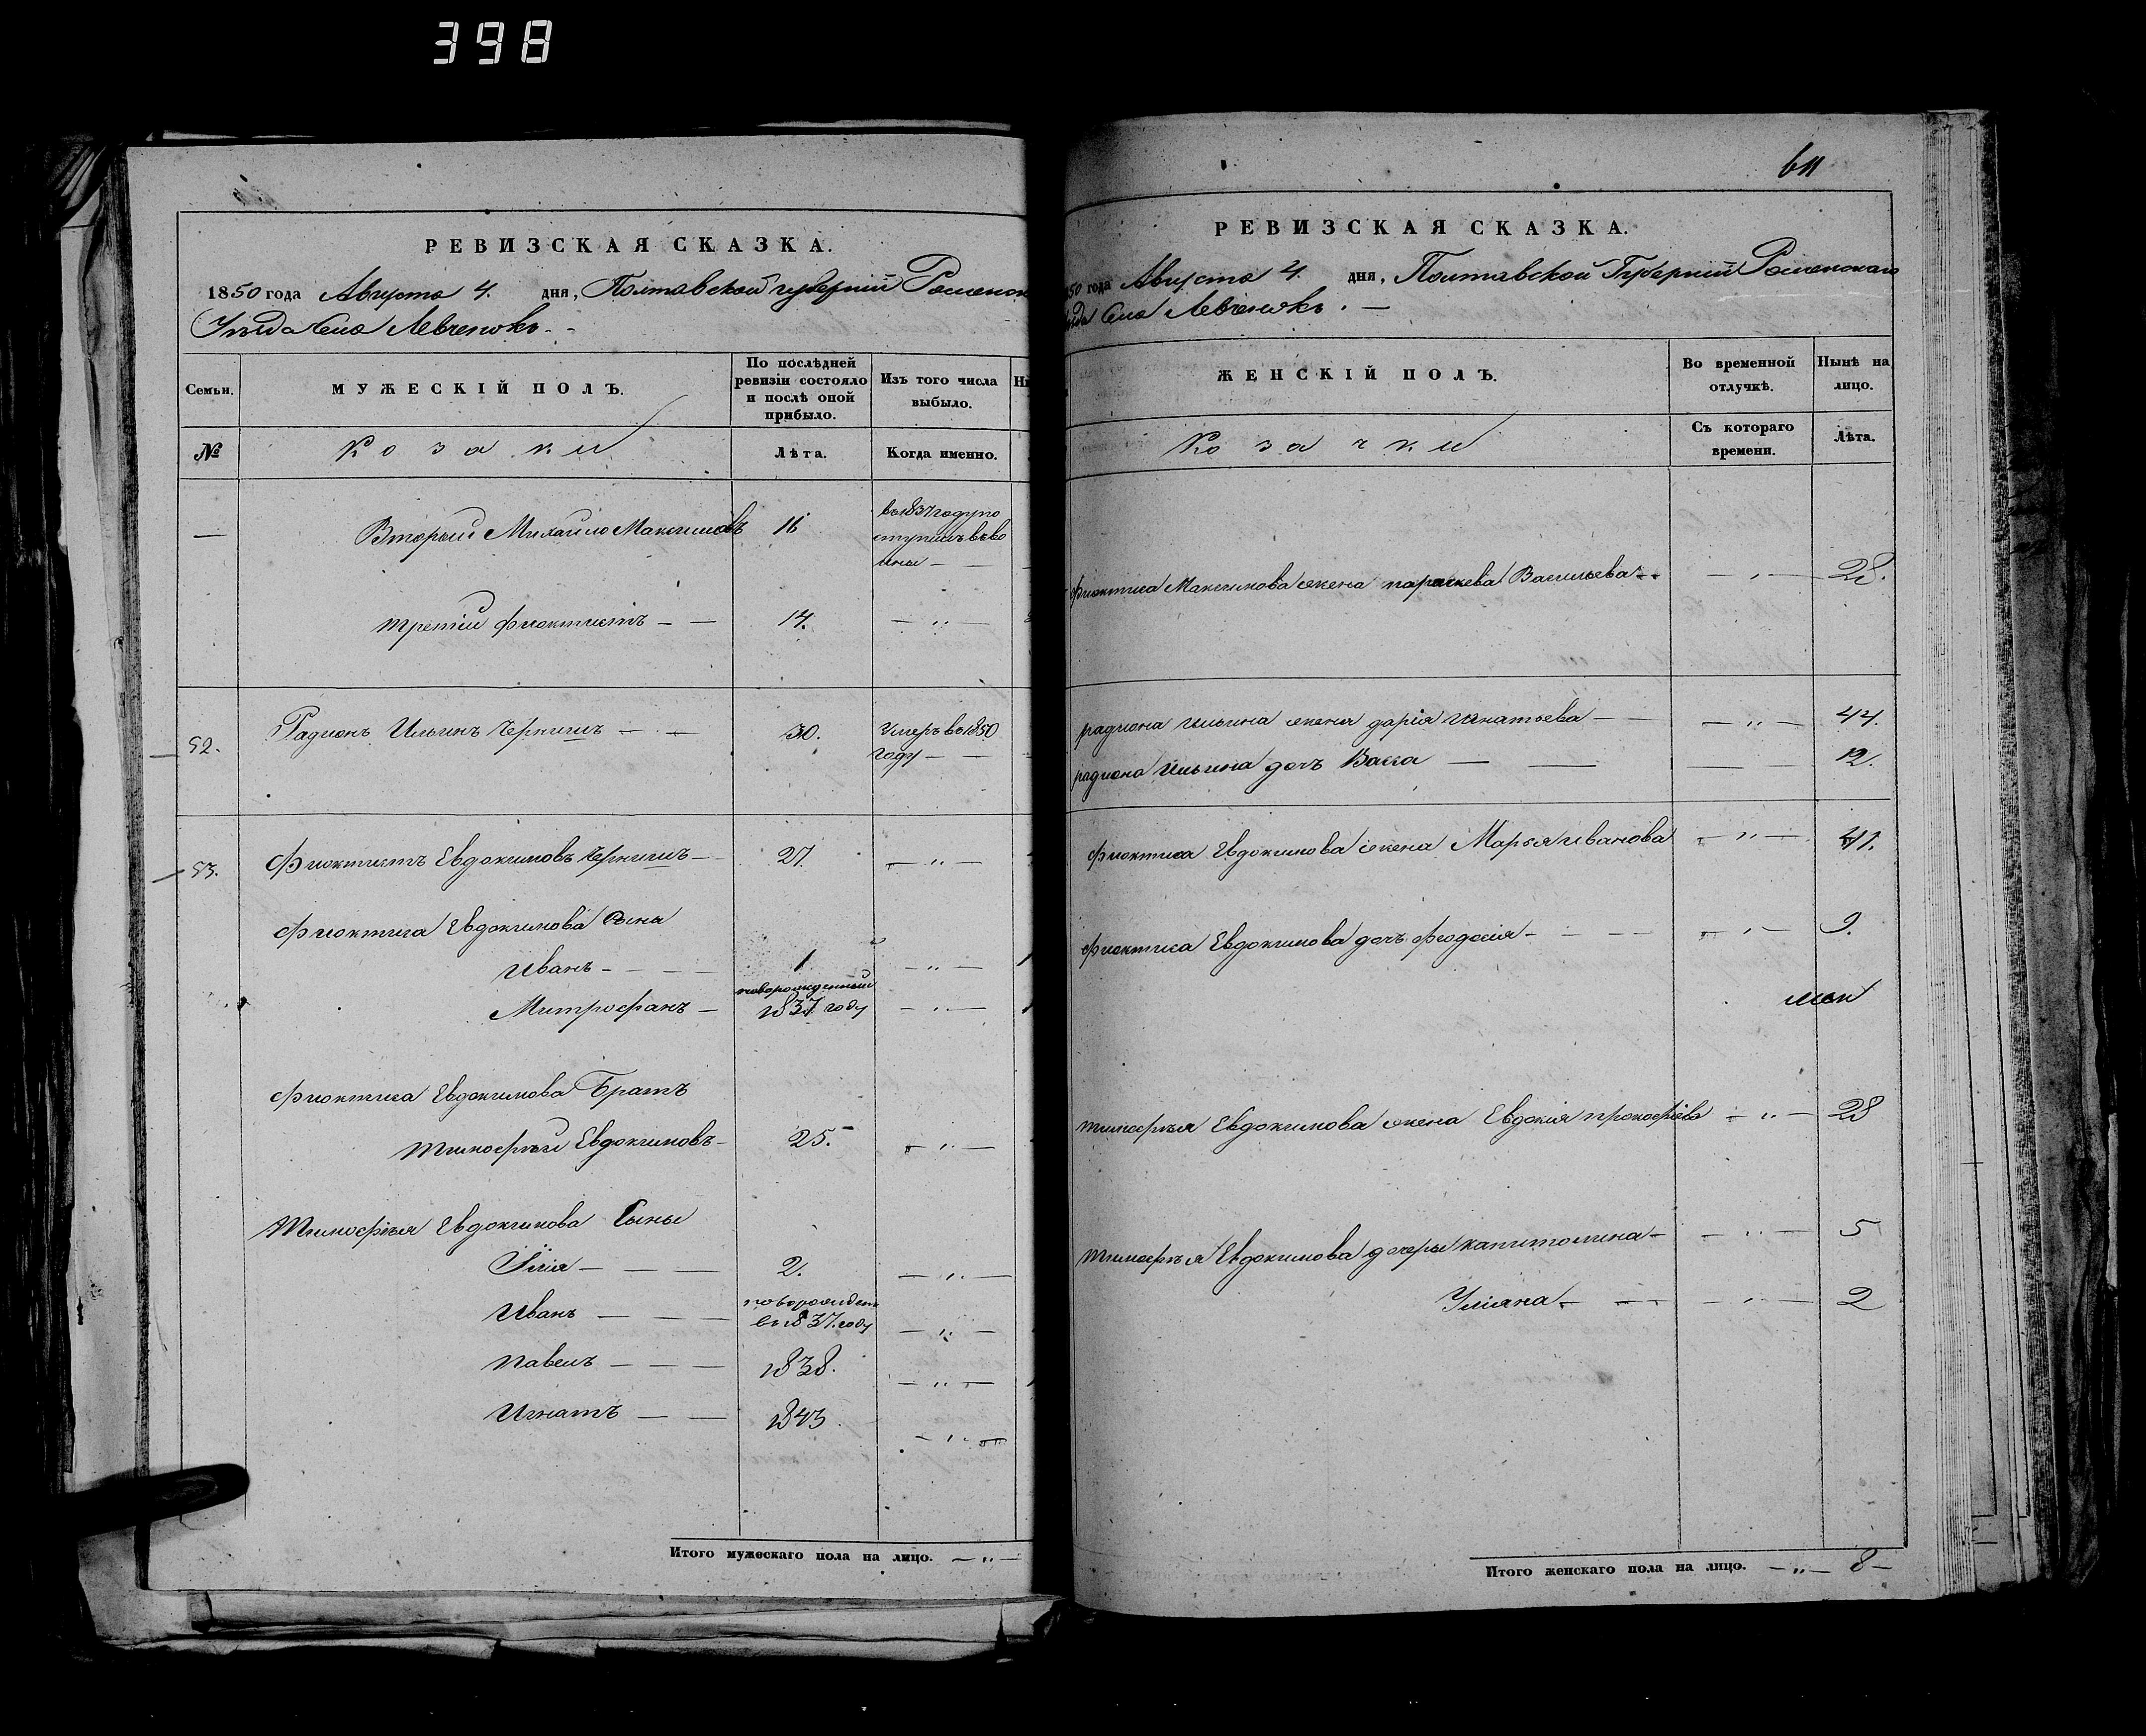 398
РЕВИЗСКАЯ СКАЗКА.
1850 года Августа 4. дня, Полтавской губерніи Роменск
Уѣзда Села Левченокъ. -
Семьи.
МУЖЕСКІЙ ПОЛЪ.
По послѣдней
ревизіи состояло
и послѣ оной
прибыло.
Изъ того числа
выбыло.
№
Козаки
Лѣта.
Когда именно.
— Вторый Михайло Максимовъ 16
въ 1837 году по
ступилъ въ во
ины —
третій фиоктистъ — — 14. — „ —
52. Радионъ Ильинъ Чернишъ — — 30. Умеръ въ 1850
году — —
53. Фиоктистъ Евдокимовъ Чернишъ — 27. — „ —
Фиоктиса Евдокимова Сыны
Иванъ — — — 1 — „ —
новорожденный
Митрофанъ — 1837 году — „ —
Фиоктиса Евдокимова Братъ
тимофѣй Евдокимовъ — 25. — „ —
Тимофѣя Евдокимова Сыны
Илія — — — 2. — „ —
новорожден
Иванъ — — — въ 1837. году — „ —
Павелъ — — — 1838. — „ —
Игнатъ — — 1843. — „ —
Итого мужескаго пола на лицо. — „ —
РЕВИЗСКАЯ СКАЗКА.
50 года Августа 4. дня, Полтавской Губерніи Роменскаго
ѣзда Села Левченокъ. —
ЖЕНСКІЙ ПОЛЪ.
Во временной
отлучкѣ.
Нынѣ на
лицо.
Козачки
Съ котораго
времени.
Лѣта.
Фиоктиса Максимова жена параскева Васильева — — „ — 28.
радиона ильина жена дарія игнатьева — — „ — 44.
радиона ильина дочъ Васса — — — — 12.
Фиоктиса Евдокимова жена Марья иванова — „ — 41.
Фиоктиса Евдокимова дочъ феодосія — — „ — 9.
тимофѣя Евдокимова жена Евдокія прокофіева — „ — 28
тимофѣя Евдокимова дочеры капитолина — — „ — 5
Уліяна — — — „ — 2
Итого женскаго пола на лицо. — „ — 8 —